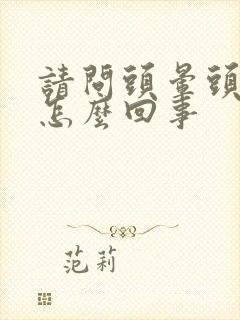 請問頭暈頭
怎麼回事
范莉